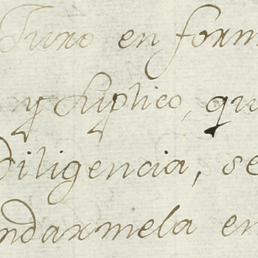 Juro en form
y suplico, qu
diligencia, se
ndarmela en